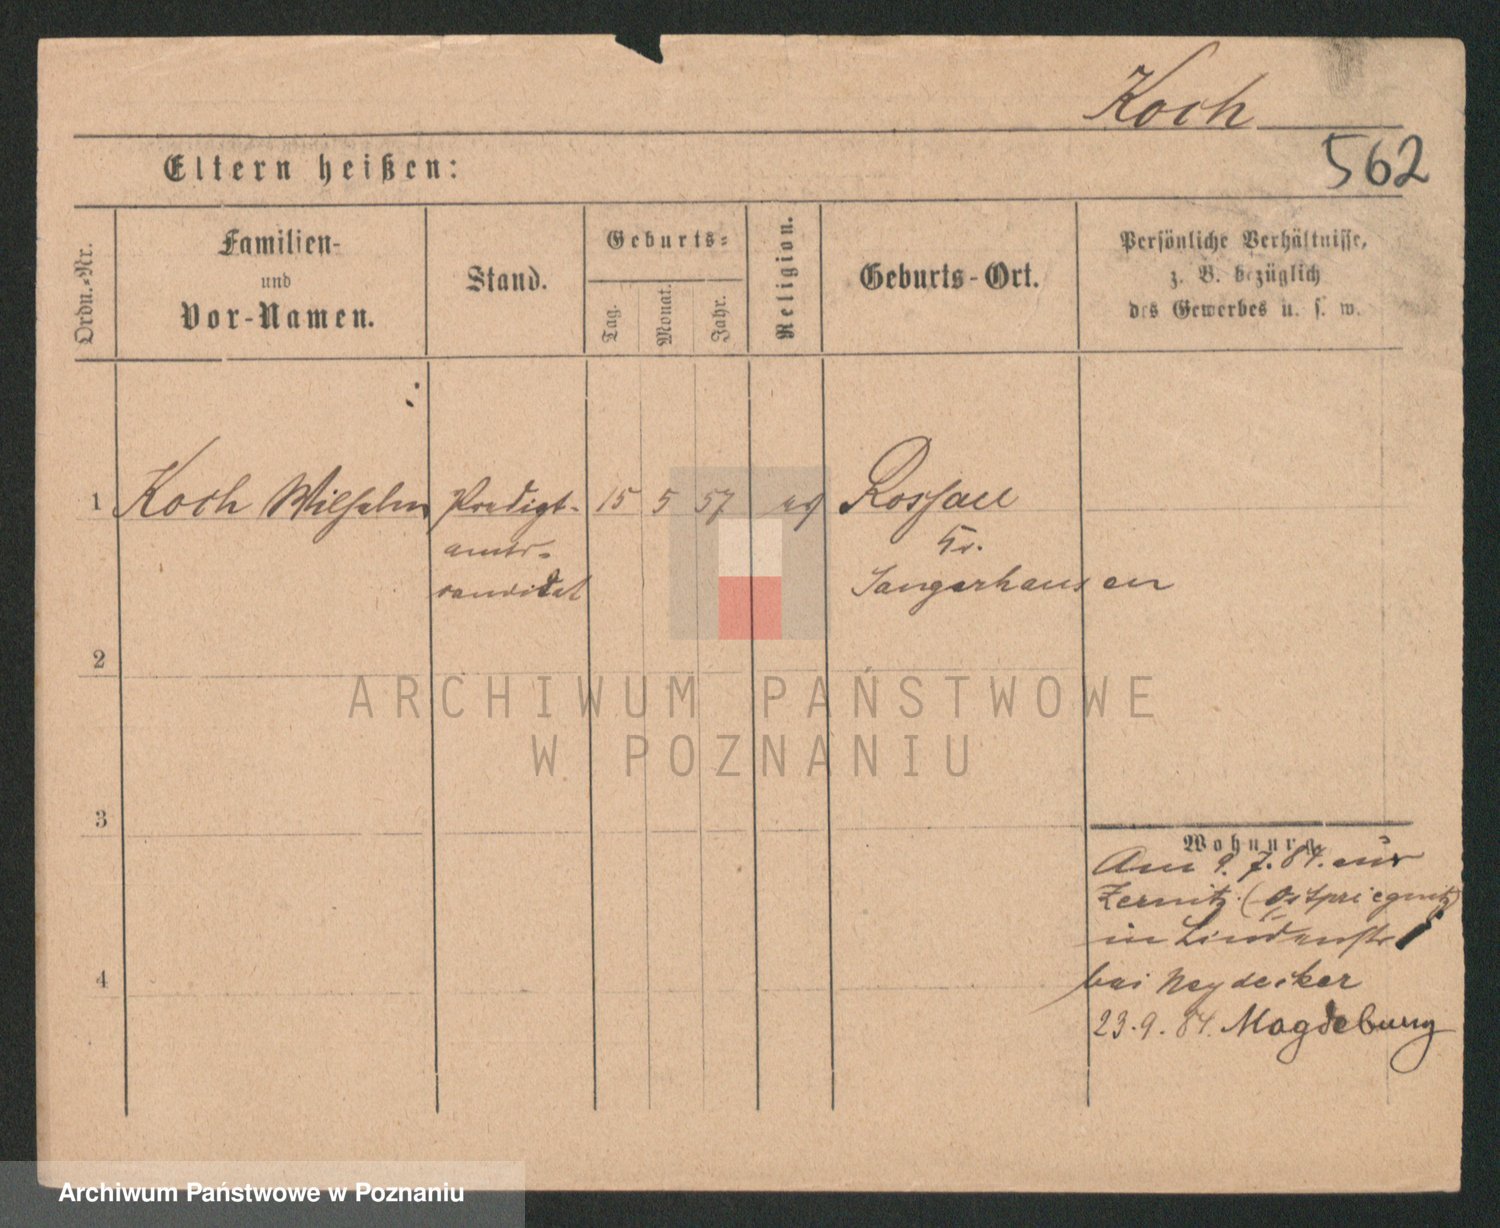 Koch
562
Eltern heißen:
Ordn.-Nr.
Familien-
und
Vor-Namen.
Stand.
Geburts-
Tag.
Monat.
Jahr.
Religion.
Geburts-Ort.
Persönliche Verhältnisse,
z. B. bezüglich
des Gewerbes u. s. w.
1 Koch Wilhelm Predigt- 15 5 57 Rossau
amts- Kr.
candidat Sangerhausen
2
ARCHIWUM PAŃSTWOWE
W POZNANIU
3
Wohnung
Am 9. 7. 84. aus
Zernitz (Ostpriegnitz)
in Lindenstr
4
bei Neydecker
23. 9. 84. Magdeburg
Archiwum Państwowe w Poznaniu